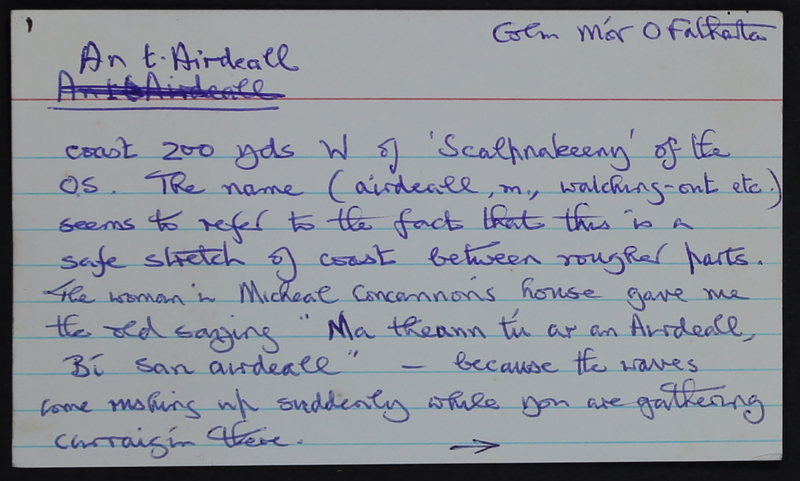 Colm Mór O Falharta
An t-Airdeall
coast 200 yds W of 'Scalpnakeeny' of the
OS. The name (airdeall, m., watching-out etc.)
seems to refer to the fact that this is a
safe stretch of coast between rougher parts.
The woman in Micheal Concannon's house gave me
the old saying "Ma theann tú ar an Airdeall,
Bí san airdeall" – because the waves
come rushing up suddenly while you are gathering
carraigín there. →